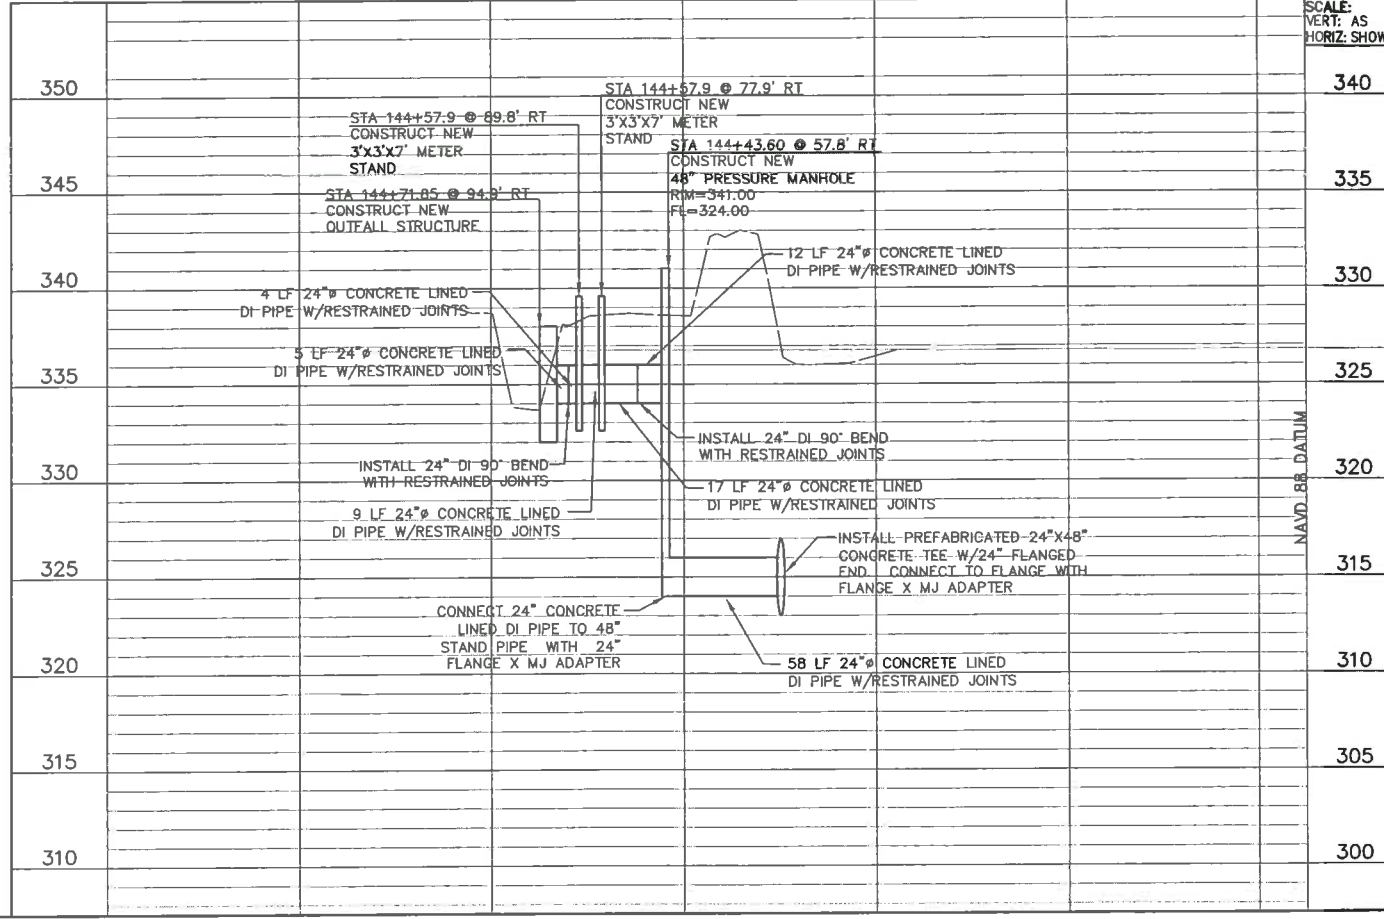 SCALE:
VERT: AS
HORIZ: SHOW
350
345
340
335
330
325
320
315
310
STA 144+57.9 @ 89.8' RT
CONSTRUCT NEW
3'X3'X7' METER
STAND
STA 144+57.9 @ 77.9' RT
CONSTRUCT NEW
3'X3'X7' METER
STAND
STA 144+43.60 @ 57.8' RT
CONSTRUCT NEW
48" PRESSURE MANHOLE
RIM=341.00
FL=324.00
STA 144+71.85 @ 94.9' RT
CONSTRUCT NEW
OUTFALL STRUCTURE
12 LF 24"ø CONCRETE LINED
DI PIPE W/RESTRAINED JOINTS
4 LF 24"ø CONCRETE LINED
DI PIPE W/RESTRAINED JOINTS
5 LF 24"ø CONCRETE LINED
DI PIPE W/RESTRAINED JOINTS
INSTALL 24" DI 90° BEND
WITH RESTRAINED JOINTS
INSTALL 24" DI 90° BEND
WITH RESTRAINED JOINTS
17 LF 24"ø CONCRETE LINED
DI PIPE W/RESTRAINED JOINTS
9 LF 24"ø CONCRETE LINED
DI PIPE W/RESTRAINED JOINTS
INSTALL PREFABRICATED 24"X48"
CONCRETE TEE W/24" FLANGED
END. CONNECT TO FLANGE WITH
FLANGE X MJ ADAPTER
CONNECT 24" CONCRETE
LINED DI PIPE TO 48"
STAND PIPE WITH 24"
FLANGE X MJ ADAPTER
58 LF 24"ø CONCRETE LINED
DI PIPE W/RESTRAINED JOINTS
NAVD 88 DATUM
340
335
330
325
320
315
310
305
300